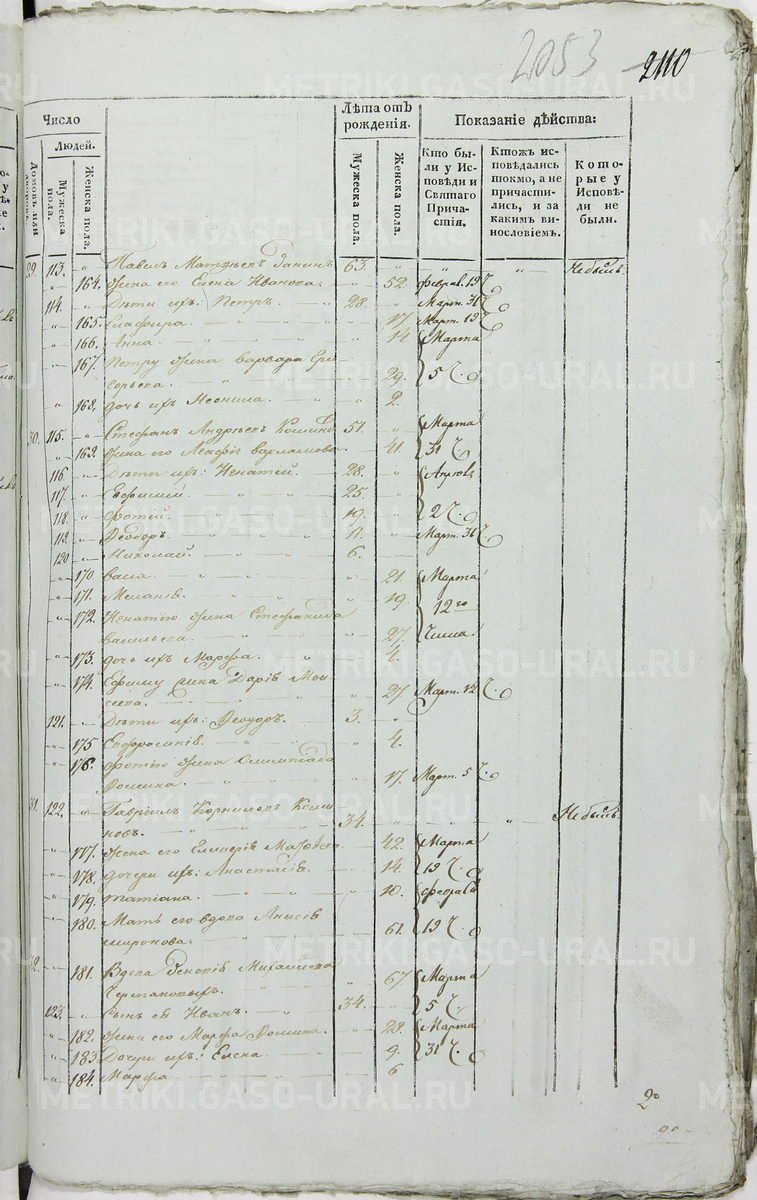 2053 2110
Число
Людей.
Домовъ или дворовъ.
Мужеска пола.
Женска пола.
Лѣта отъ рожденія.
Мужеска пола.
Женска пола.
Показаніе дѣйства:
Кто бы-
ли у Ис-
повѣди и
Святаго
Прича-
стія.
Ктожъ ис-
повѣдались
токмо, а не
причасти-
лись, и за
какимъ ви-
нословіемъ.
Кото-
рые у
Исповѣ-
ди не
были.
29. 113. " Павелъ Матѳѣевъ 63 " " " Небылъ.
" 164. жена его Елена Иванова. " 52. феврал. 19 ч.
114. " Дѣти ихъ: Петръ. 28. " Март. 31 ч.
" 165. Глафира. " 17. Март. 19 ч.
" 166. Анна. " 14. Марта
" 167. Петру жена варвара Гри
горьева. " 29. 5 ч.
" 168. дочь ихъ Неонила. " 2.
30. 115. " Стефанъ Андрѣевъ 51. " Марта
" 169. жена его 41. 31 ч.
116. " Дѣти ихъ: Игнатій. 28. " Апрѣля
117. " Евфимій. 25. "
118. " фотій. 19. " 2 ч.
119. " Ѳеодоръ. 11. " Март. 31 ч.
120 " Николай. 6.
" 170 " 21. Марта
" 171. Меланія. " 19. 12го
" 172. Игнатію жена Стефанида
васильева. " 27. Числа
" 173. дочь ихъ Марфа. " 4.
" 174. Ефиму жина Дарія Мои
сеева. " 27 Март. 12 ч.
121. " Дѣти ихъ: Ѳеодоръ. 3. "
" 175 Евфросинія. " 4.
" 176. фотію жена Олимпіада
Фомина. " 17. Март. 5 ч.
31. 122. " Гавріилъ Корниловъ Коши
новъ. 34. " " " Небылъ.
" 177. жена его 42. Марта
" 178. дочери ихъ: Анастасія. 14. 19 ч.
" 179. татіана. " 10. февраля
" 180. Мать его вдова Анисія
миронова. " 61. 19 ч.
32. " 181. Вдова Михайлова
67 Марта
123. " Сынъ ея Иванъ. 34. " 5 ч.
" 182. жена его Марфа Фомина. " 28. Марта
" 183 Дочери ихъ: Елена. " 9. 31 ч.
" 184. Марфа " 6
20
90
METRIKI.GASO-URAL.RU